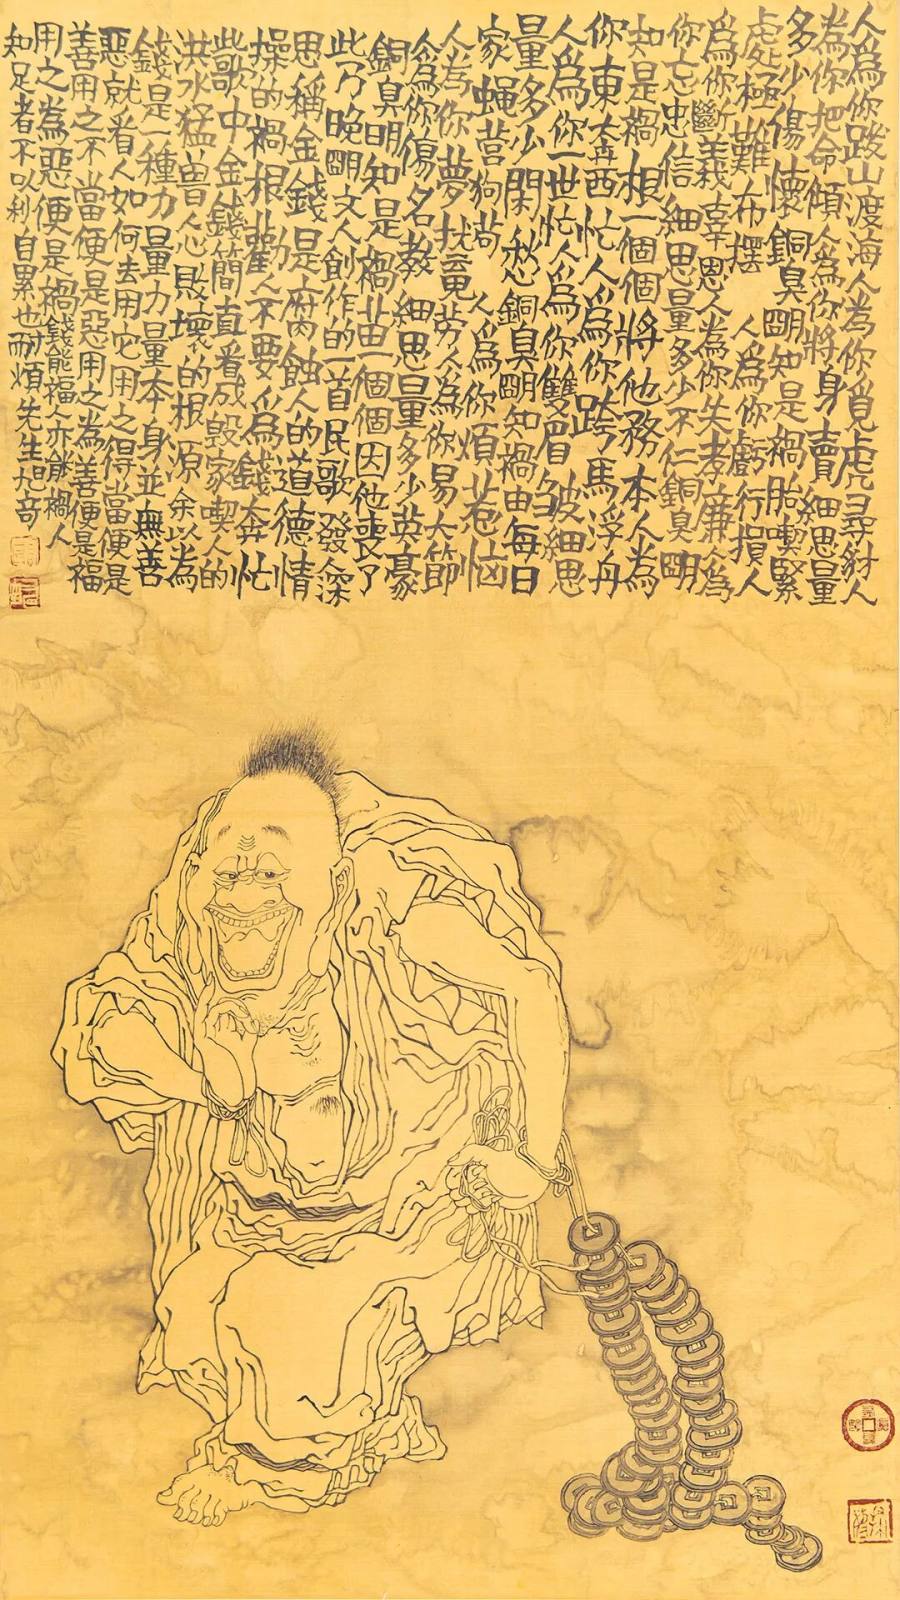 人為你跋山渡海人為你覓虎尋豺人
為你把命傾人為你將身賣細思量
多少傷懷銅臭明知是禍胎喫緊
處極難布擺人為你虧行損人
為你斷義辜恩人為你失孝廉人為
你忘忠信細思量多少不仁銅臭明
知是禍根一個個將他務本人為
你東奔西忙人為你跨馬浮舟
人為你一世忙人為你雙眉皺細思
量多少閑愁銅臭明知禍由每日
家蠅營狗苟人為你煩惹惱
人為你夢擾竟勞人為你易大節
人為你傷名教細思量多少英豪
銅臭明知是禍苗一個個因他喪了
此乃晚明文人創作的一首民歌發深
思稱金錢是腐蝕人的道德情
操的禍根勸人不要為錢奔忙
此歌中金錢簡直看成毀家喫人的
洪水猛獸人心敗壞的根源余以為
錢是一種力量力量本身並無善
惡就看人如何去用它用之得當便是
善用之不當便是惡用之為善便是福
用之為惡便是禍錢能福人亦能禍人
知足者不以利自累也耐煩先生旭奇